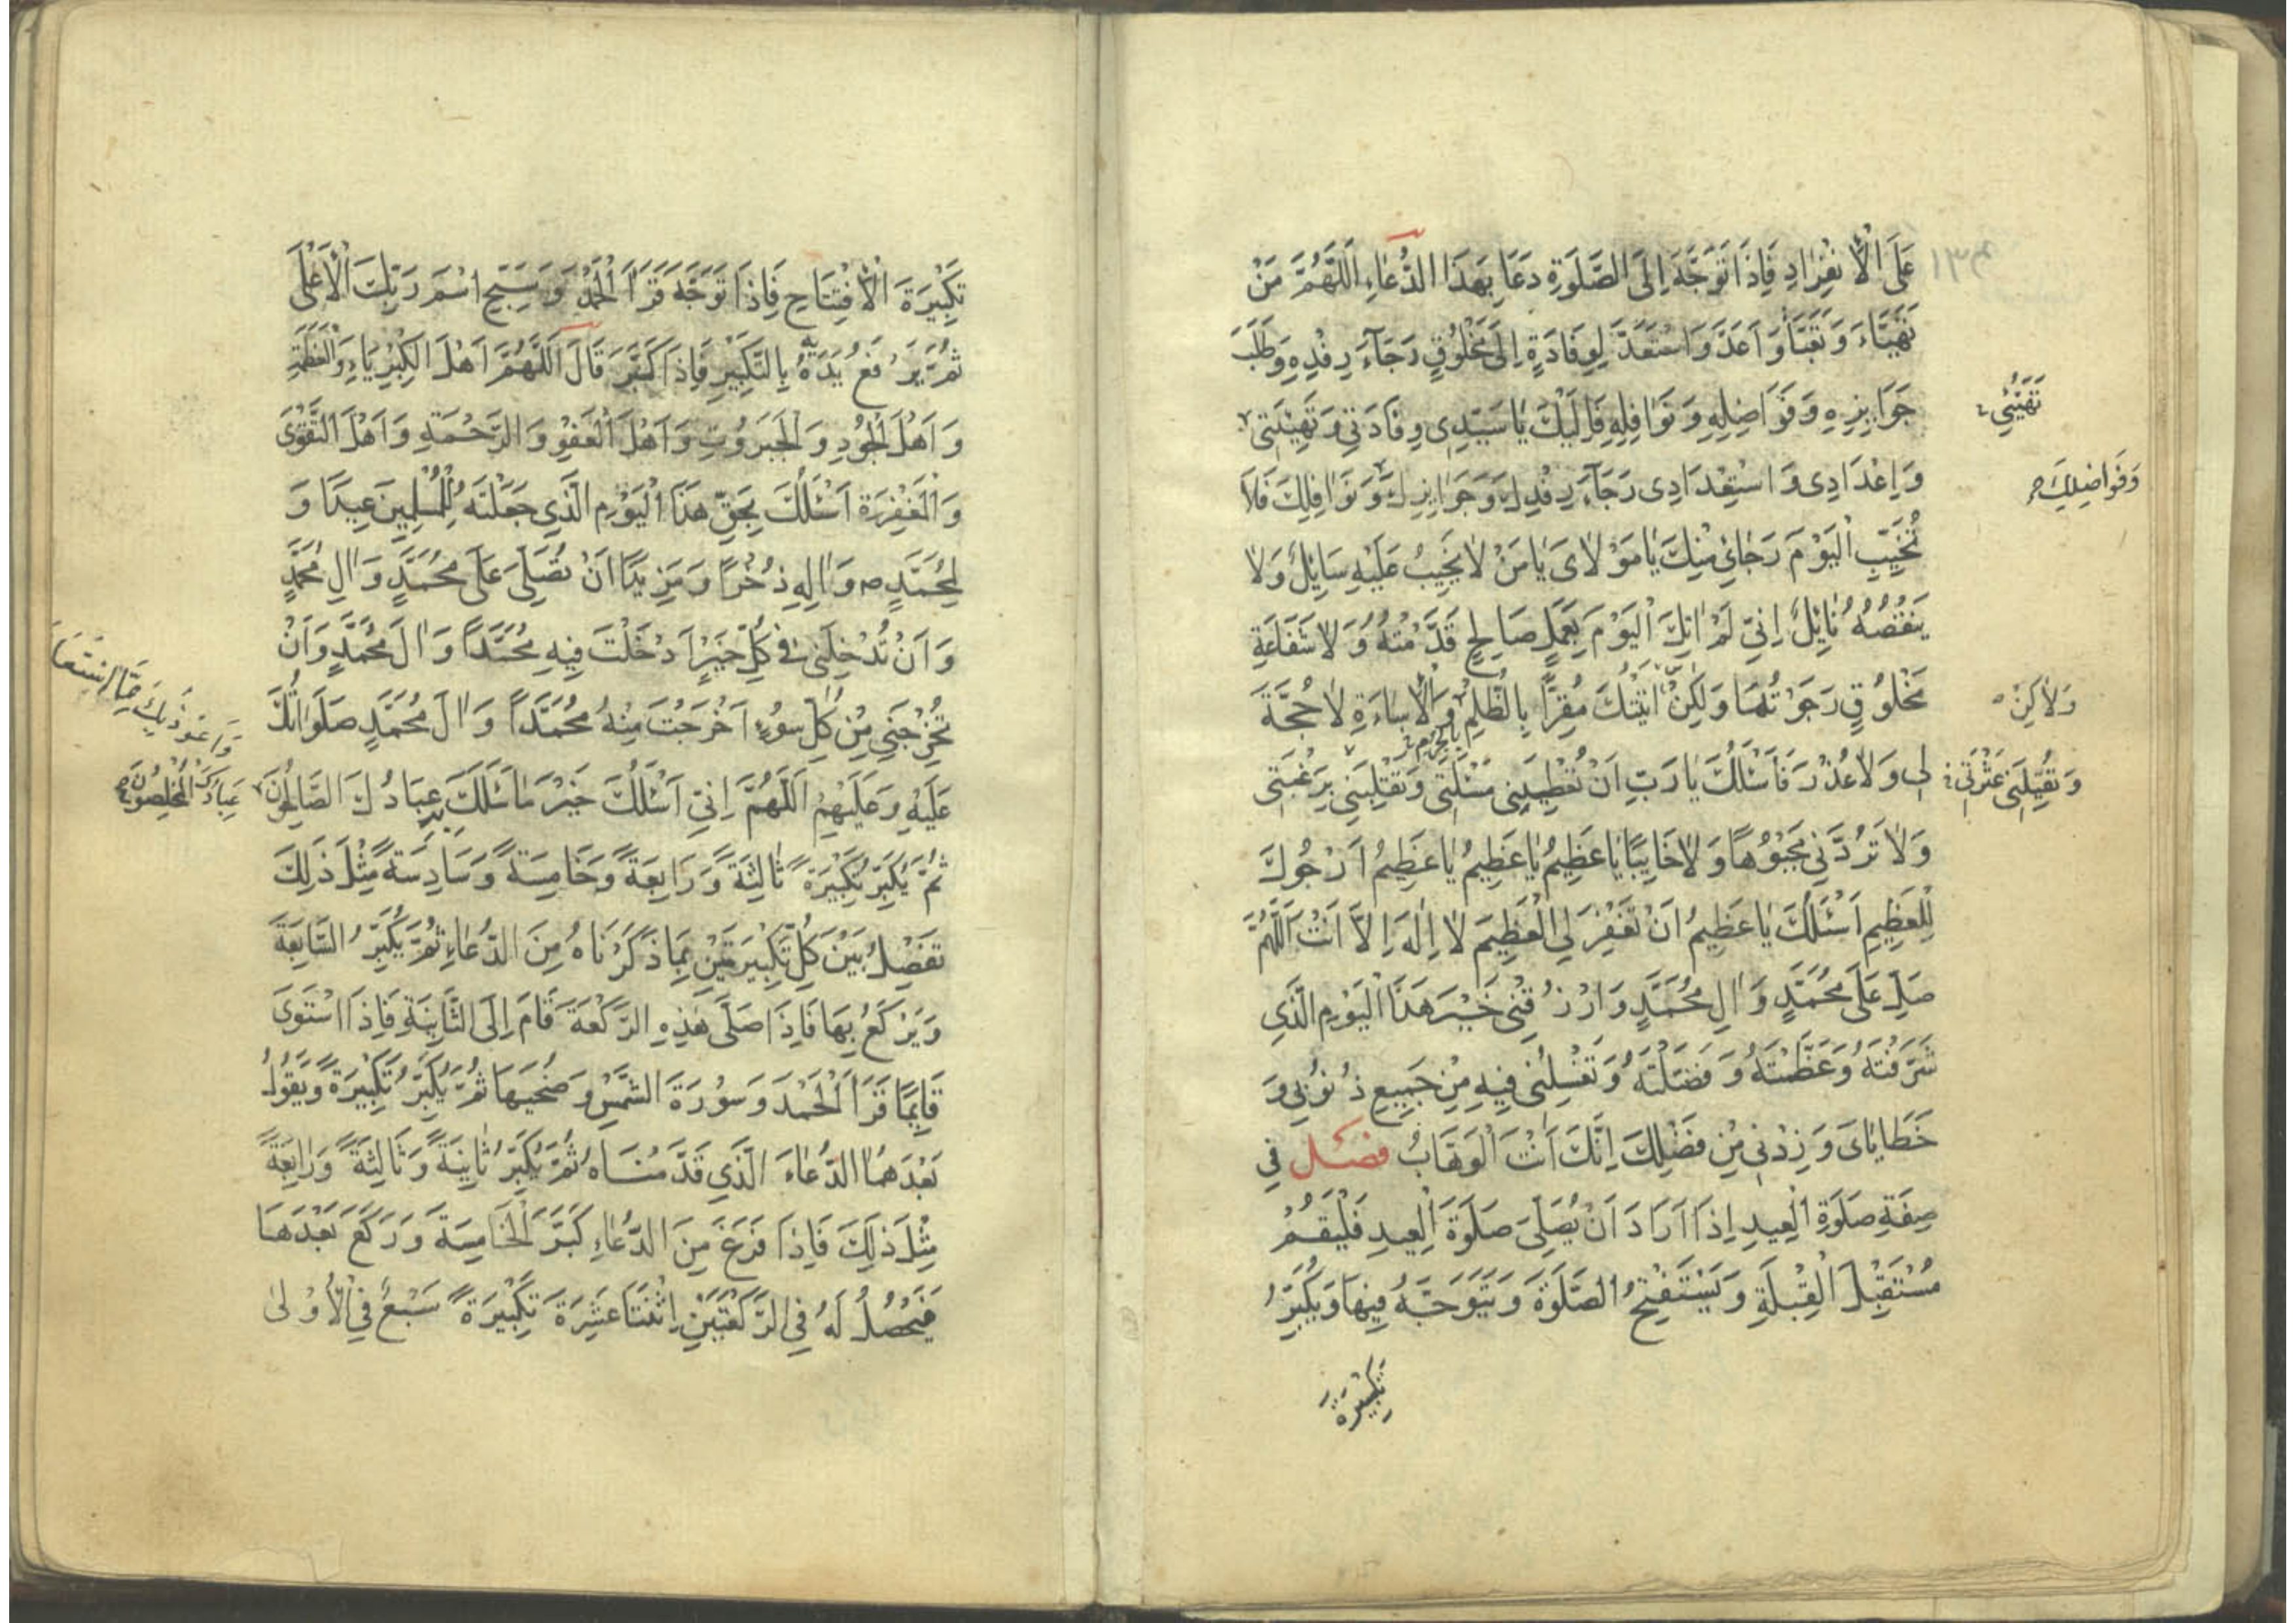 عَلَى الْاِنْفِرَادِ فَاِذَا تَوَجَّهَ اِلَى الصَّلٰوةِ دَعَا بِهَذَا الدُّعَاءِ اَللّٰهُمَّ مَنْ
تَهَيَّاءَ وَتَعَبَّأَ وَاَعَدَّ وَاسْتَعَدَّ لِوِفَادَةٍ اِلَى مَخْلُوقٍ رَجَآءَ رِفْدِهِ وَطَلَبَ
جَوَايِزِهِ وَفَوَاضِلِهِ وَنَوَافِلِهِ فَاِلَيْكَ يَا سَيِّدِى وِفَادَتِي وَتَهْيِئَتِى
تَهَيُّئِى
وَاِعْدَادِى وَاسْتِعْدَادِى رَجَآءَ رِفْدِكَ وَجَوَايِزِكَ وَنَوَافِلِكَ فَلَا
وَفَوَاضِلِكَ
تُخَيِّبِ الْيَوْمَ رَجَائِي مِنْكَ يَا مَوْلَاىَ يَا مَنْ لَا يَخِيبُ عَلَيْهِ سَايِلٌ وَلَا
يَنْقُصُهُ نَايِلٌ اِنِّي لَمْ اٰتِكَ الْيَوْمَ بِعَمَلٍ صَالِحٍ قَدَّمْتُهُ وَلَا شَفَاعَةِ
مَخْلُوقٍ رَجَوْتُهَا وَلَكِنْ اَتَيْتُكَ مُقِرًّا بِالظُّلْمِ وَالْاِسَاءَةِ لَا حُجَّةَ
وَلَاكِنْ
لِى وَلَا عُذْرَ فَاَسْئَلُكَ يَا رَبِّ اَنْ تُعْطِيَنِى مَسْئَلَتِى وَتَقْلِبَنِى بِرَغْبَتِى
وَتُقِيلَنِى عَثْرَتِى
وَلَا تَرُدَّنِي مَجْبُوهًا وَلَا خَايِبًا يَا عَظِيمُ يَا عَظِيمُ يَا عَظِيمُ اَرْجُوكَ
لِلْعَظِيمِ اَسْئَلُكَ يَا عَظِيمُ اَنْ تَغْفِرَ لِىَ الْعَظِيمَ لَا اِلٰهَ اِلَّا اَنْتَ اَللّٰهُمَّ
صَلِّ عَلَى مُحَمَّدٍ وَاٰلِ مُحَمَّدٍ وَارْزُقْنِى خَيْرَ هَذَا الْيَوْمِ الَّذِى
شَرَّفْتَهُ وَعَظَّمْتَهُ وَفَضَّلْتَهُ وَتَغْسِلُنِى فِيهِ مِنْ جَمِيعِ ذُنُوبِى وَ
خَطَايَاىَ وَزِدْنِى مِنْ فَضْلِكَ اِنَّكَ اَنْتَ الْوَهَّابُ فصل فِي
صِفَةِ صَلٰوةِ الْعِيدِ اِذَا اَرَادَ اَنْ يُصَلِّىَ صَلٰوةَ الْعِيدِ فَلْيَقُمْ
مُسْتَقْبِلَ الْقِبْلَةِ وَيَسْتَفْتِحُ الصَّلٰوةَ وَيَتَوَجَّهُ فِيهَا وَيُكَبِّرُ
تَكْبِيرَةَ
تَكْبِيرَةَ الْاِفْتِتَاحِ فَاِذَا تَوَجَّهَ قَرَاَ الْحَمْدَ وَسَبِّحِ اسْمَ رَبِّكَ الْاَعْلَى
ثُمَّ يَرْفَعُ يَدَهُ بِالتَّكْبِيرِ فَاِذَا كَبَّرَ قَالَ اَللّٰهُمَّ اَهْلَ الْكِبْرِيَاءِ وَالْعَظَمَةِ
وَاَهْلَ الْجُودِ وَالْجَبَرُوتِ وَاَهْلَ الْعَفْوِ وَالرَّحْمَةِ وَاَهْلَ التَّقْوَى
وَالْمَغْفِرَةِ اَسْئَلُكَ بِحَقِّ هَذَا الْيَوْمِ الَّذِى جَعَلْتَهُ لِلْمُسْلِمِينَ عِيدًا وَ
لِمُحَمَّدٍ ص وَاٰلِهِ ذُخْرًا وَمَزِيدًا اَنْ تُصَلِّىَ عَلَى مُحَمَّدٍ وَاٰلِ مُحَمَّدٍ
وَاَنْ تُدْخِلَنِى فِى كُلِّ خَيْرٍ اَدْخَلْتَ فِيهِ مُحَمَّدًا وَاٰلَ مُحَمَّدٍ وَاَنْ
تُخْرِجَنِى مِنْ كُلِّ سُوءٍ اَخْرَجْتَ مِنْهُ مُحَمَّدًا وَاٰلَ مُحَمَّدٍ صَلَوَاتُكَ
عَلَيْهِ وَعَلَيْهِمْ اَللّٰهُمَّ اِنِّي اَسْئَلُكَ خَيْرَ مَا سَئَلَكَ عِبَادُكَ الصَّالِحُونَ
وَاَعُوذُ بِكَ مِمَّا اسْتَعَاذَ
عِبَادُكَ الْمُخْلِصُونَ
ثُمَّ يُكَبِّرُ تَكْبِيرَةً ثَالِثَةً وَرَابِعَةً وَخَامِسَةً وَسَادِسَةً مِثْلَ ذٰلِكَ
تَفْصِلُ بَيْنَ كُلِّ تَكْبِيرَتَيْنِ بِمَا ذَكَرْنَاهُ مِنَ الدُّعَاءِ ثُمَّ يُكَبِّرُ السَّابِعَةَ
وَيَرْكَعُ بِهَا فَاِذَا صَلَّى هَذِهِ الرَّكْعَةَ قَامَ اِلَى الثَّانِيَةِ فَاِذَا اسْتَوَى
قَايِمًا قَرَاَ الْحَمْدَ وَسُورَةَ الشَّمْسِ وَضُحَيهَا ثُمَّ يُكَبِّرُ تَكْبِيرَةً وَيَقُولُ
بَعْدَهَا الدُّعَاءَ الَّذِى قَدَّمْنَاهُ ثُمَّ يُكَبِّرُ ثَانِيَةً وَثَالِثَةً وَرَابِعَةً
مِثْلَ ذٰلِكَ فَاِذَا فَرَغَ مِنَ الدُّعَاءِ كَبَّرَ الْخَامِسَةَ وَرَكَعَ بَعْدَهَا
فَيَحْصُلُ لَهُ فِى الرَّكْعَتَيْنِ اِثْنَتَا عَشِرَةَ تَكْبِيرَةً سَبْعٌ فِى الْاُولَى